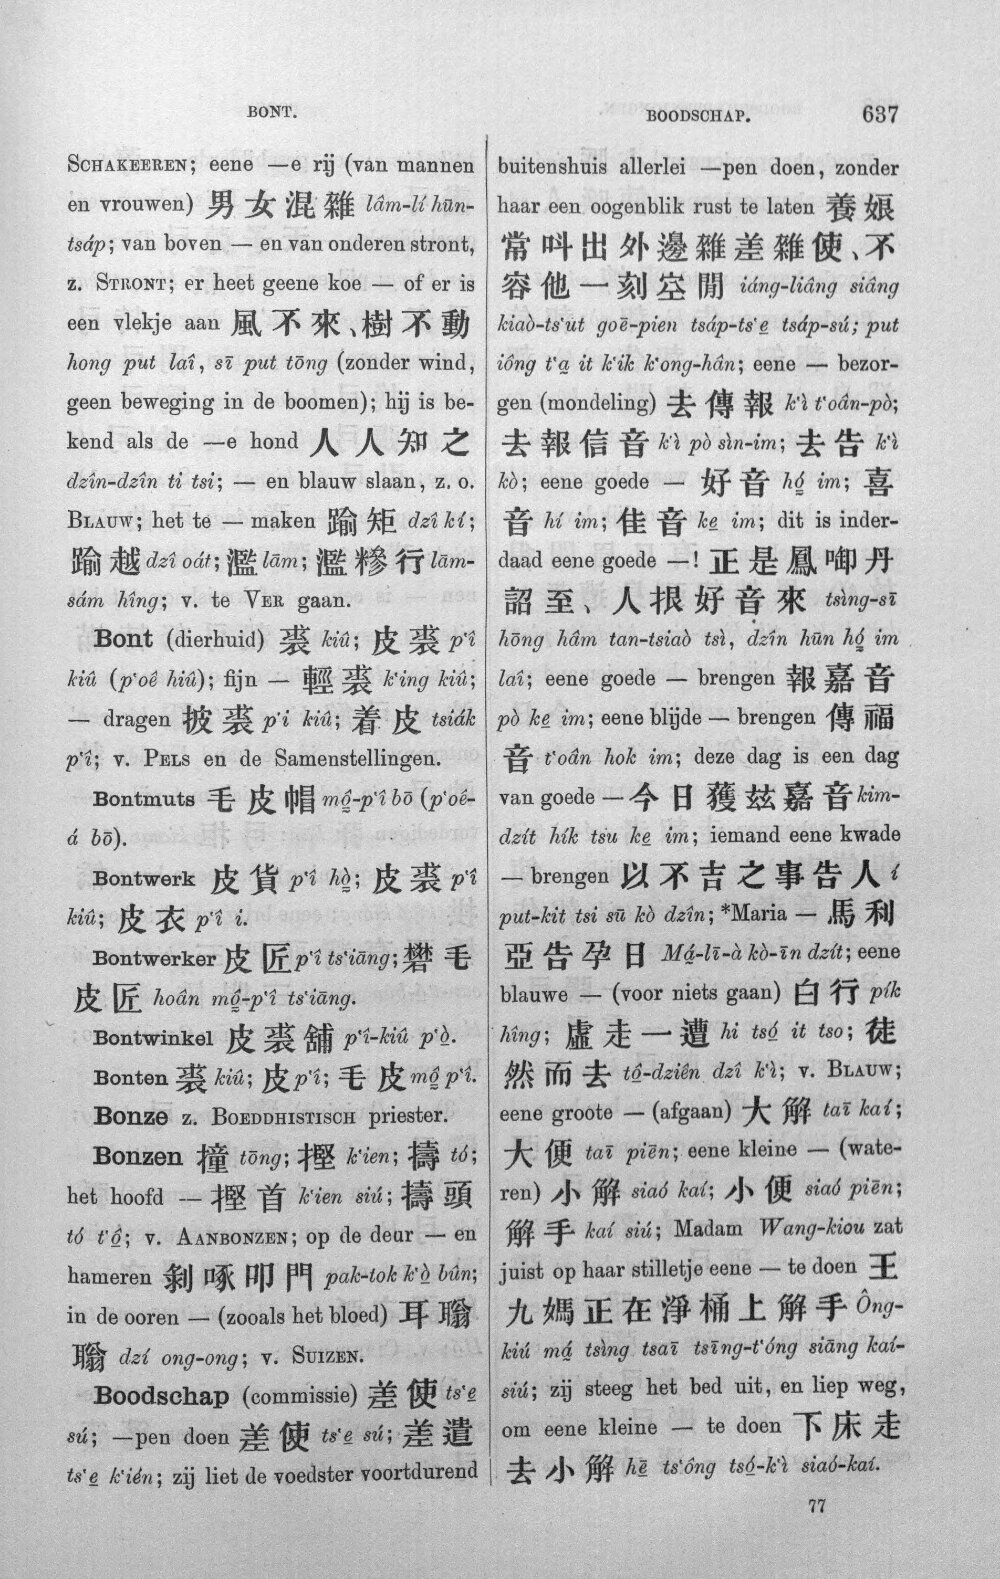 BONT.
BOODSCHAP.
637
SCHAKEEREN; eene —e rij (van mannen
en vrouwen) 男女混雜 lâm-lí hūn-
tsáp; van boven — en van onderen stront,
z. STRONT; er heet geene koe — of er is
een vlekje aan 風不來、樹不動
hong put laî, sī put tōng (zonder wind,
geen beweging in de boomen); hij is be-
kend als de —e hond 人人知之
dzîn-dzîn ti tsi; — en blauw slaan, z. o.
BLAUW; het te — maken 踰矩 dzî kí;
踰越 dzî oát; 濫 lām; 濫糝行 lām-
sám hîng; v. te VER gaan.
Bont (dierhuid) 裘 kiû; 皮裘 p'î
kiû (p'oê hiû); fijn — 輕裘 k'ing kiû;
— dragen 披裘 p'i kiû; 着皮 tsiák
p'î; v. PELS en de Samenstellingen.
Bontmuts 毛皮帽 mô̤-p'î bō (p'oé-
á bō).
Bontwerk 皮貨 p'î hò̤; 皮裘 p'î
kiû; 皮衣 p'î i.
Bontwerker 皮匠 p'î ts'iāng; 礬毛
皮匠 hoân mô̤-p'î ts'iāng.
Bontwinkel 皮裘舖 p'î-kiû p'ò̤.
Bonten 裘 kiû; 皮 p'î; 毛皮 mô̤ p'î.
Bonze z. BOEDDHISTISCH priester.
Bonzen 撞 tōng; 摼 k'ien; 擣 tó;
het hoofd — 摼首 k'ien siú; 擣頭
tó t'ô̤; v. AANBONZEN; op de deur — en
hameren 剝啄叩門 pak-tok k'ò̤ bûn;
in de ooren — (zooals het bloed) 耳聬
聬 dzí ong-ong; v. SUIZEN.
Boodschap (commissie) 差使 ts'e̤
sú; —pen doen 差使 ts'e̤ sú; 差遣
ts'e̤ k'ién; zij liet de voedster voortdurend
buitenshuis allerlei —pen doen, zonder
haar een oogenblik rust te laten 養娘
常呌出外邊雜差雜使、不
容他一刻空閒 iáng-liâng siâng
kiaò-ts'ut goē-pien tsáp-ts'e̤ tsáp-sú; put
iông t'a̤ it k'ik k'ong-hân; eene — bezor-
gen (mondeling) 去傳報 k'ì t'oân-pò;
去報信音 k'ì pò sìn-im; 去告 k'ì
kò; eene goede — 好音 hó̤ im; 喜
音 hí im; 佳音 ke̤ im; dit is inder-
daad eene goede —! 正是鳳啣丹
詔至、人報好音來 tsìng-sī
hōng hâm tan-tsiaò tsì, dzîn hūn hó̤ im
laî; eene goede — brengen 報嘉音
pò ke̤ im; eene blijde — brengen 傳福
音 t'oân hok im; deze dag is een dag
van goede — 今日獲玆嘉音 kim-
dzít hík tsu ke̤ im; iemand eene kwade
— brengen 以不吉之事告人 í
put-kit tsi sū kò dzîn; *Maria — 馬利
亞告孕日 Má̤-lī-à kò-īn dzít; eene
blauwe — (voor niets gaan) 白行 pík
hîng; 虛走一遭 hi tsó̤ it tso; 徒
然而去 tô̤-dziên dzî k'ì; v. BLAUW;
eene groote — (afgaan) 大解 taī kaí;
大便 taī piēn; eene kleine — (wate-
ren) 小解 siaó kaí; 小便 siaó piēn;
解手 kaí siú; Madam Wang-kiou zat
juist op haar stilletje eene — te doen 王
九媽正在淨桶上解手 Ông-
kiú má̤ tsìng tsaī tsīng-t'óng siāng kaí-
siú; zij steeg het bed uit, en liep weg,
om eene kleine — te doen 下床走
去小解 hē̤ ts'ông tsó̤-k'ì siaó-kaí.
77